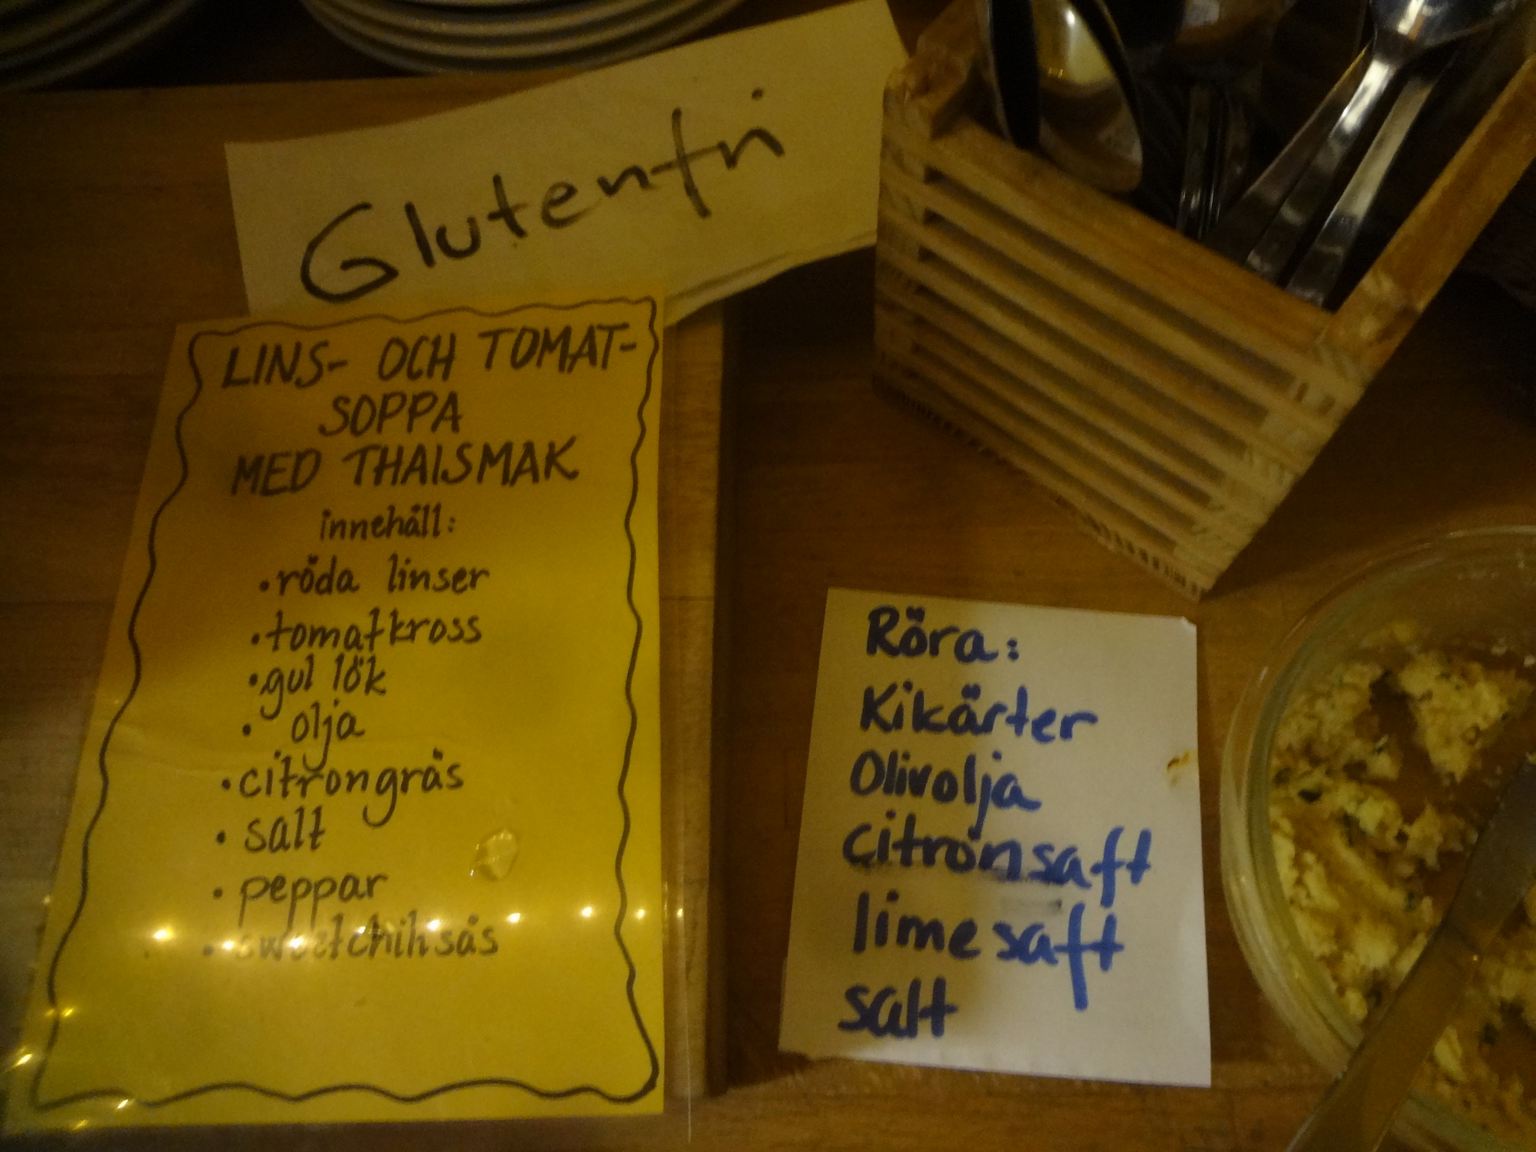 Glutenfri
LINS- OCH TOMAT-
SOPPA
MED THAISMAK
innehåll:
• röda linser
• tomatkross
• gul lök
• olja
• citrongräs
• salt
• peppar
• sweetchilisås
Röra:
Kikärter
Olivolja
citronsaft
limesaft
salt